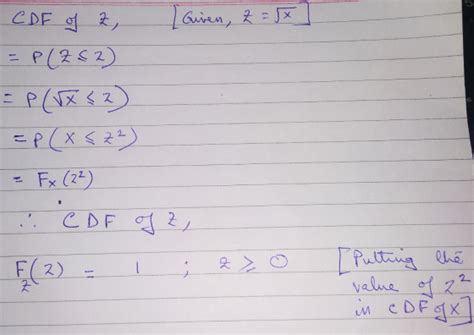 CDF of Z, [Given, Z = √X]
= P(Z ≤ z)
= P(√X ≤ z)
= P(X ≤ z²)
= Fx(z²)
∴ CDF of Z,
F_Z(z) = 1 ; z ≥ 0 [Putting the
value of z²
in CDF of X]